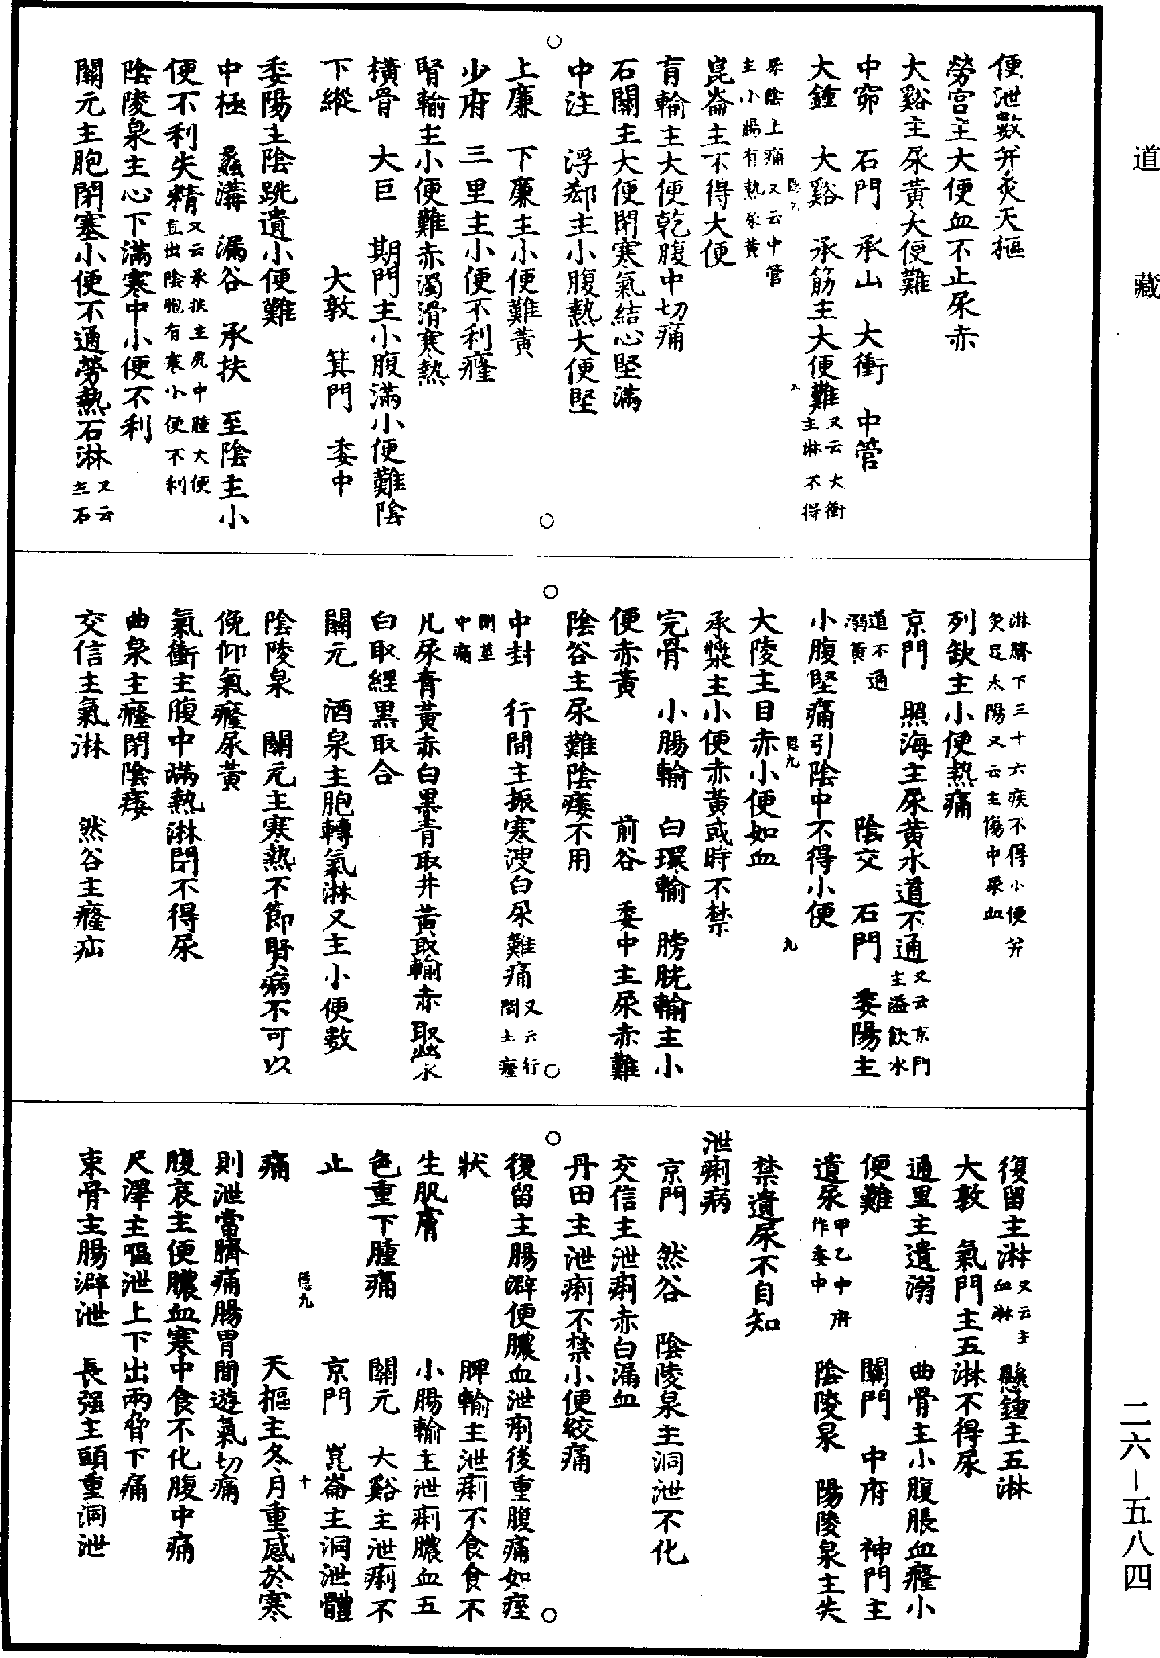 道藏
便泄數并灸天樞
勞宮主大便血不止尿赤
大谿主尿黃大便難
中窌　石門　承山　大衝　中管
大鍾　大谿　承筋主大便難又云大衝主淋不得
尿陰上痛又云中管主小腸有熱尿黃
崑崙主不得大便
肓輸主大便乾腹中切痛
石關主大便閉寒氣結心堅滿
中注　浮郄主小腹熱大便堅
上廉　下廉主小便難黃
少府　三里主小便不利癃
腎輸主小便難赤濁滑寒熱
橫骨　大巨　期門主小腹滿小便難陰
下縱　大敦　箕門　委中
委陽主陰跳遺小便難
中極　蠡溝　漏谷　承扶　至陰主小
便不利失精又云承扶主尻中腫大便直出陰胞有寒小便不利
陰陵泉主心下滿寒中小便不利
關元主胞閉塞小便不通勞熱石淋又云主石
淋臍下三十六疾不得小便并灸足太陽又云主傷中尿血
列缺主小便熱痛
京門　照海主尿黃水道不通又云京門主溢飲水
道不通溺黃　陰交　石門　委陽主
小腹堅痛引陰中不得小便
大陵主目赤小便如血
承漿主小便赤黃或時不禁
完骨　小腸輸　白環輸　膀胱輸主小
便赤黃　前谷　委中主尿赤難
陰谷主尿難陰痿不用
中封　行間主振寒溲白尿難痛又云行間主癃
閉莖中痛
凡尿青黃赤白黑青取井黃取輸赤取滎
白取經黑取合
關元　酒泉主胞轉氣淋又主小便數
陰陵泉　關元主寒熱不節腎病不可以
俛仰氣癃尿黃
氣衝主腹中滿熱淋閉不得尿
曲泉主癃閉陰痿
交信主氣淋　然谷主癃疝
復留主淋又云主血淋　懸鍾主五淋
大敦　氣門主五淋不得尿
通里主遺溺　曲骨主小腹脹血癃小
便難　關門　中府　神門主
遺尿甲乙中府作委中　陰陵泉　陽陵泉主失
禁遺尿不自知
泄痢病
京門　然谷　陰陵泉主洞泄不化
交信主泄痢赤白漏血
丹田主泄痢不禁小便絞痛
復留主腸澼便膿血泄痢後重腹痛如痓
狀　脾輸主泄痢不食食不
生肌膚　小腸輸主泄痢膿血五
色重下腫痛　關元　大谿主泄痢不
止　京門　崑崙主洞泄體
痛　天樞主冬月重感於寒
則泄當臍痛腸胃間遊氣切痛
腹哀主便膿血寒中食不化腹中痛
尺澤主嘔泄上下出兩脅下痛
束骨主腸澼泄　長强主頭重洞泄
二六—五八四